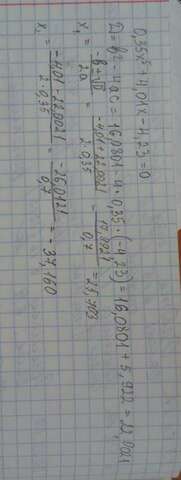 0,35x² + 4,01x - 4,23 = 0
D = b² - 4ac = 16,0801 - 4 · 0,35 · (-4,23) = 16,0801 + 5,922 = 22,0021
x₁ = (-b + √D) / 2a = (-4,01 + 22,0021) / (2 · 0,35) = 17,9921 / 0,7 = 25,703
x₁ = (-4,01 - 22,0021) / (2 · 0,35) = -26,0121 / 0,7 = -37,160